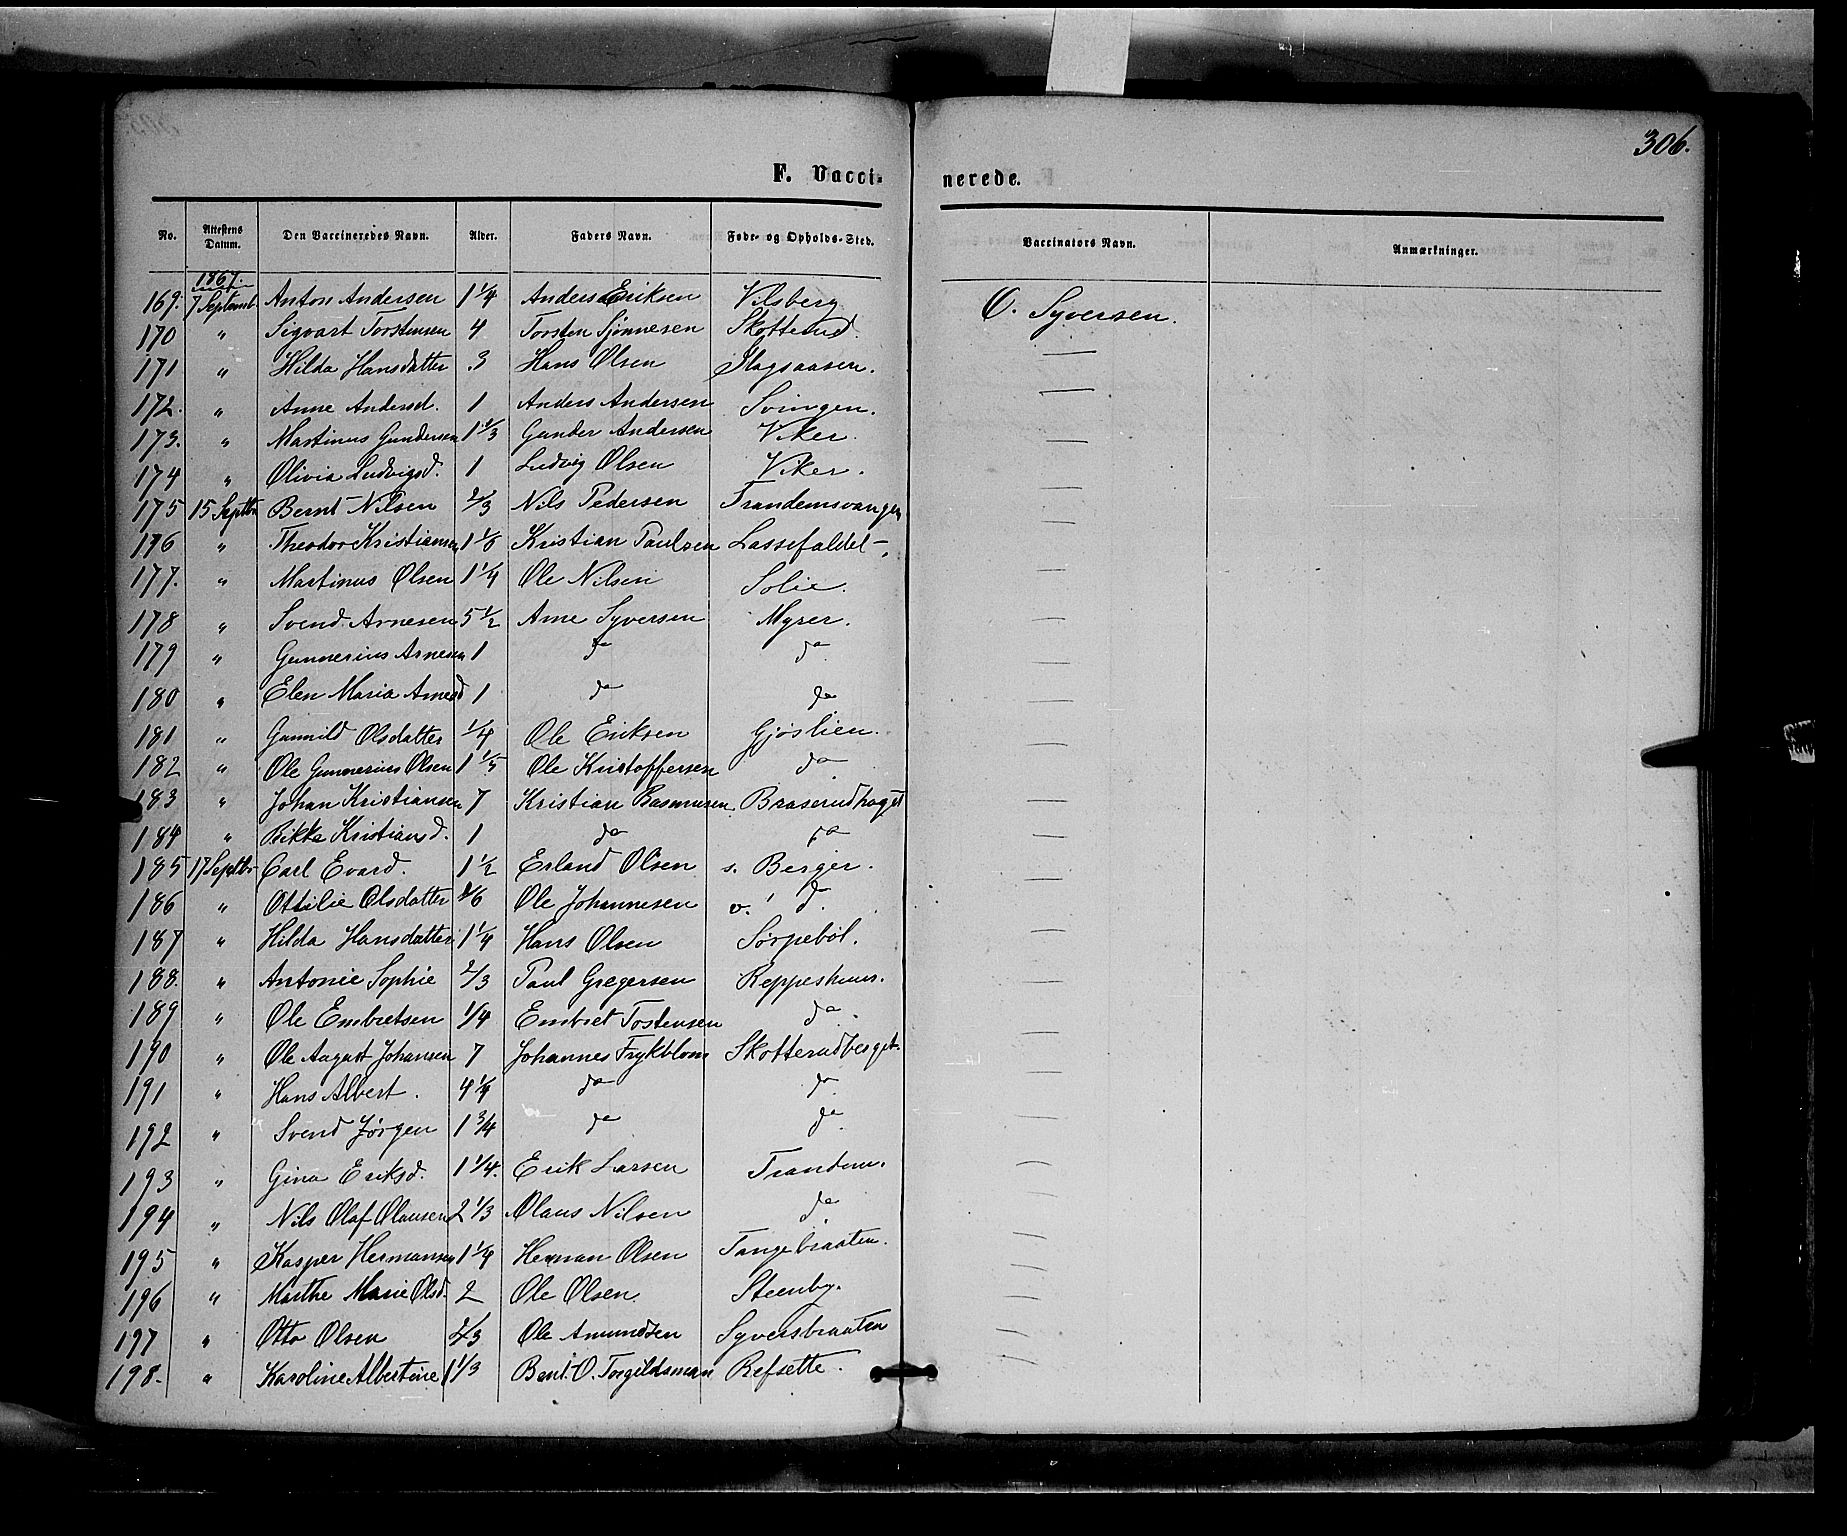 306.
F. Vacci- nerede.
No. Attestens Datum. Den Vaccineredes Navn. Alder. Faders Navn. Føde- og Opholds-Sted. Vaccinators Navn. Anmærkninger.
1867.
169. 7 Septemb. Anton Andersen 1 1/4 Anders Eriksen Vilsberg O. Syversen.
170 " Sigvart Torstensen 4 Torsten Sjønnesen Skotterud. —
171 " Hilda Hansdatter 3 Hans Olsen Slagsaasen. —
172. " Anne Andersd. 1 Anders Andersen Svingen. —
173. " Martinus Gundersen 1 1/3 Gunder Andersen Viker. —
174 " Olivia Ludvigsd. 1 Ludvig Olsen Viker. —
175 15 Septbr Bernt Nilsen 2/3 Nils Pedersen Trandemsvangen —
176 " Theodor Kristiansen 1 Kristian Paulsen Lassefaldet —
177. " Martinus Olsen 1 1/4 Ole Nilsen Solie. —
178 " Svend Arnesen 5 1/2 Arne Syversen Myrer. —
179 " Gunnerius Arnesen 1 do do —
180 " Elen Maria Arnesd 1 do do —
181 " Gunnild Olsdatter 1/4 Ole Eriksen Gjøslien. —
182 " Ole Gunnerius Olsen 1 1/5 Ole Kristoffersen do —
183 " Johan Kristiansen 7 Kristian Rasmusen Braserudhaget —
184 " Bikka Kristiansd. 1 do do —
185 17 Septbr Carl Evard. 1 1/2 Erland Olsen s. Berger. —
186 " Ottilie Olsdatter /6 Ole Johannesen v. do. —
187 " Hilda Hansdatter 1 1/4 Hans Olsen Sørpebøl. —
188. " Antonie Sophie 2/3 Paul Gregersen Reppeshuus. —
189 " Ole Embretsen 1/4 Embret Tostensen do. —
190 " Ole August Johansen 7 Johannes Frykblom Skotterudberget. —
191 " Hans Albert. 4 1/4 do do —
192 " Svend Jørgen 1 3/4 do do —
193 " Gina Eriksd. 1 1/4. Erik Larsen Trandem. —
194 " Nils Olaf Olausen 2 1/3 Olaus Nilsen do —
195 " Kasper Hermansen 1 1/4 Herman Olsen Tangebraaten. —
196 " Marthe Marie Olsd. 2 Ole Olsen Steenby. —
197 " Otto Olsen 2/3 Ole Amundsen Syversbraaten —
198. " Karoline Albertine 1 1/3 Bent. O. Torgildsman Refsette. —